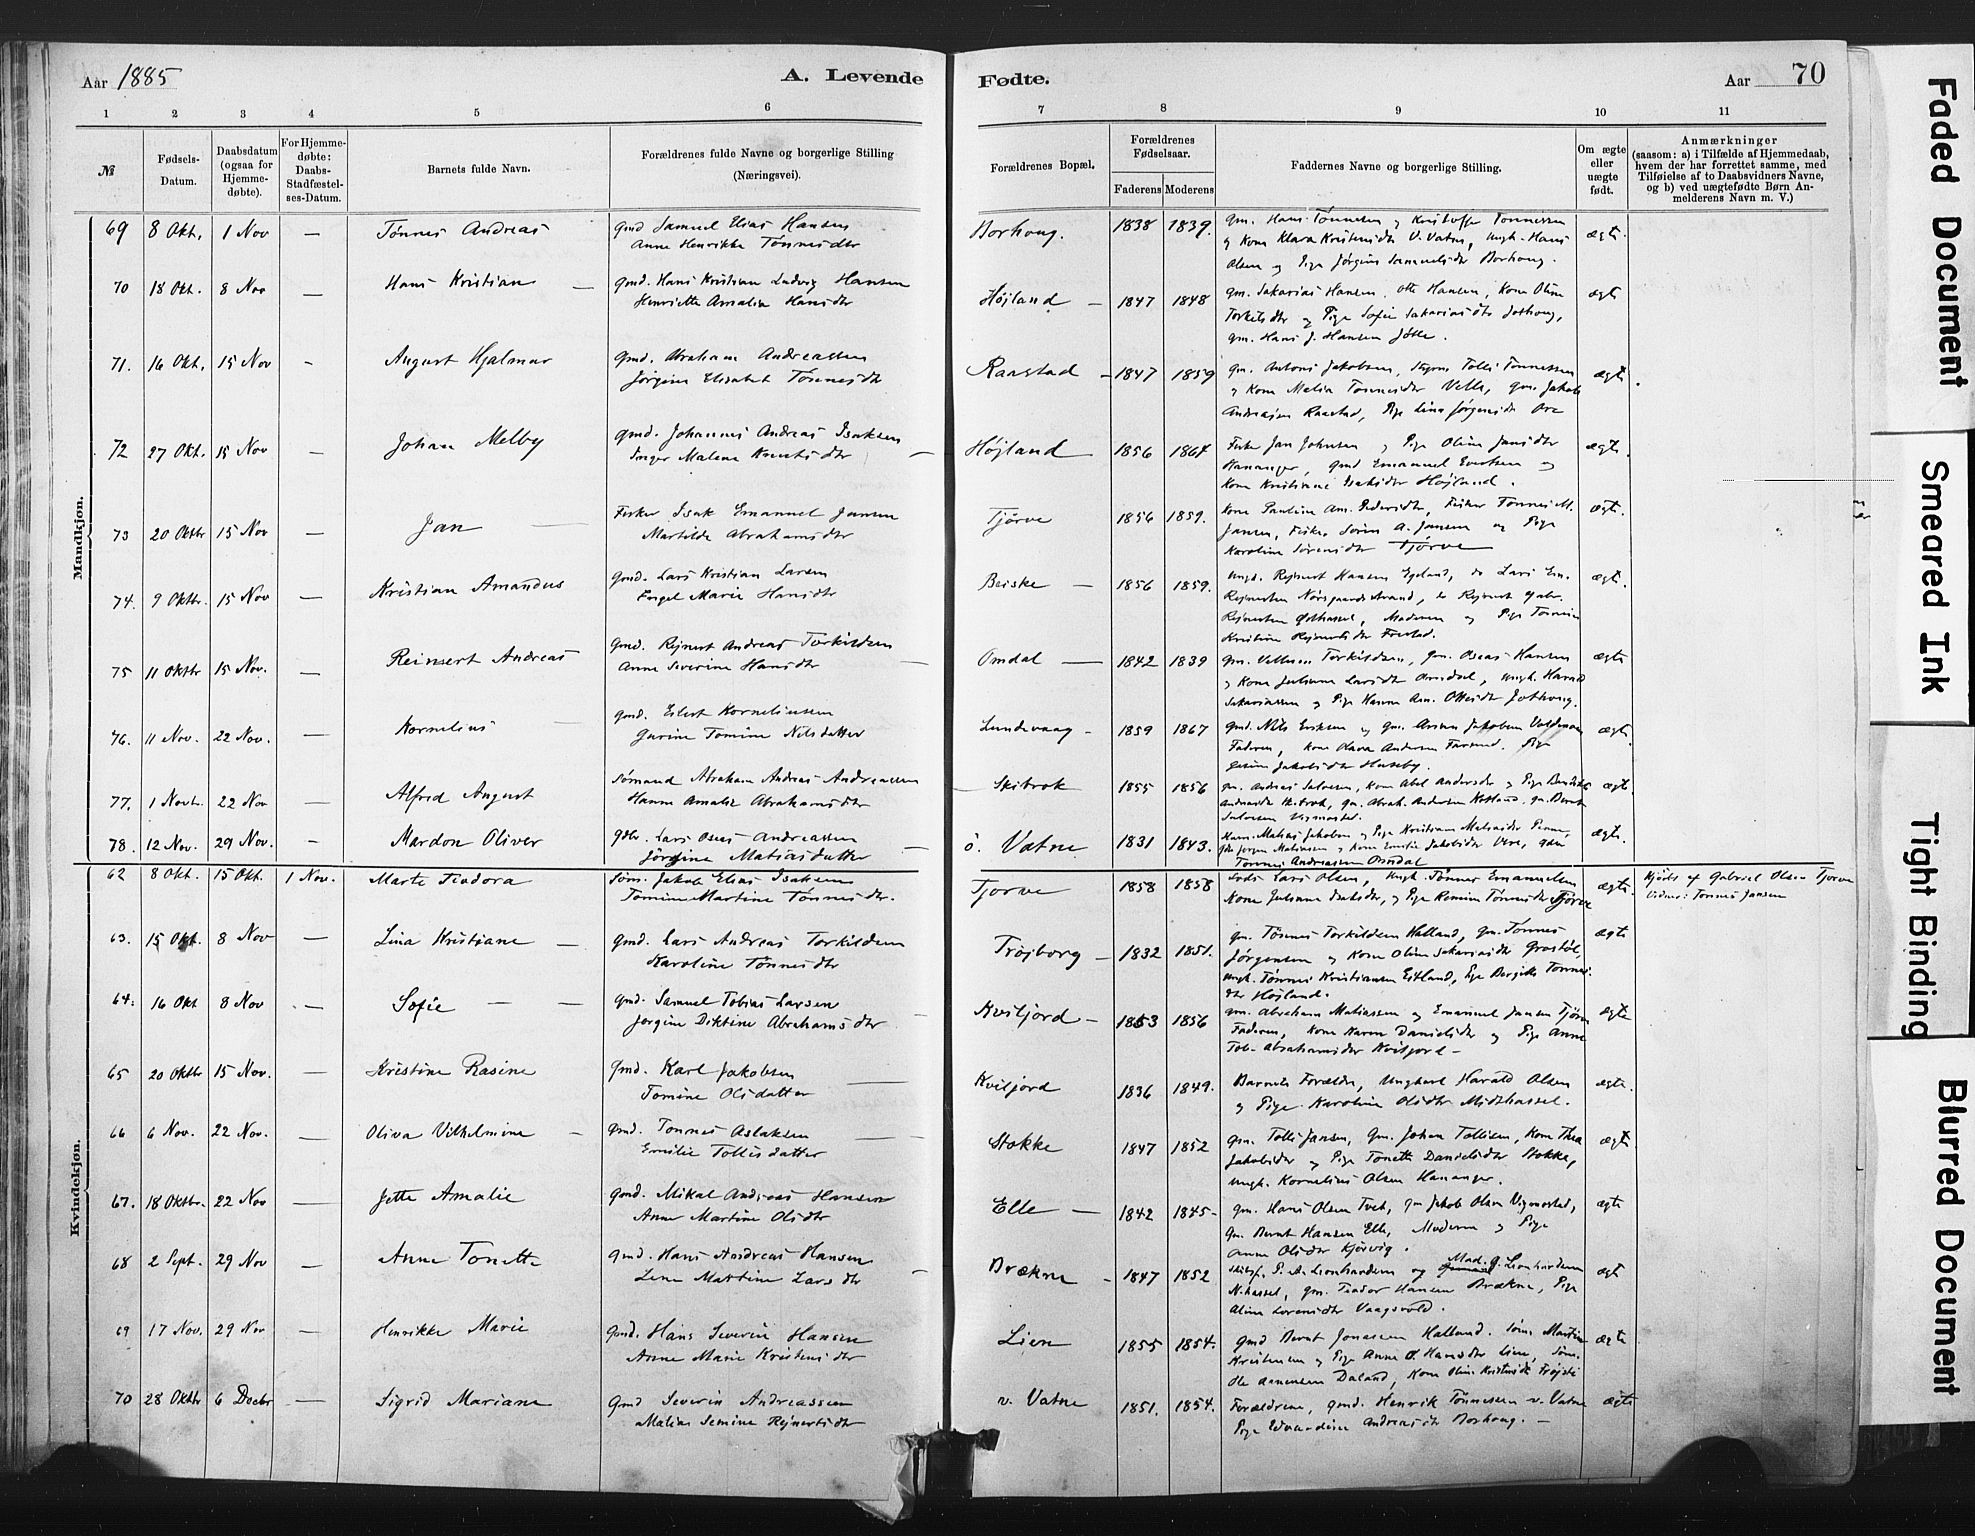 Aar 1885
A. Levende
Fødte.
Aar
70
1 2 3 4 5 6 7 8 9 10 11
№
Fødsels-
Datum.
Daabsdatum
(ogsaa for
Hjemme-
døbte).
For Hjemme-
døbte:
Daabs-
Stadfæstel-
ses-Datum.
Barnets fulde Navn.
Forældrenes fulde Navne og borgerlige Stilling
(Næringsvei).
Forældrenes Bopæl.
Forældrenes
Fødselsaar.
Faderens Moderens
Faddernes Navne og borgerlige Stilling.
Om ægte
eller
uægte
født.
Anmærkninger
(saasom: a) i Tilfælde af Hjemmedaab,
hvem der har forrettet samme, med
Tilføielse af to Daabsvidners Navne,
og b) ved uægtefødte Børn An-
melderens Navn m. V.)
Mandkjøn.
69 8 Okt. 1 Nov — Tønnes Andreas gmd Samuel Elias Hansen
Anne Henrikke Tønnesdtr
Borhoug. 1838 1839. gm. Hans Tønnesen og Kristoffer Tønnessen
og Kone Klara V. Vatne, Ungk. Hans
Olsen og Pige Jørgine Samuelsdtr Borhoug.
ægte.
70 18 Okt. 8 Nov — Hans Kristian — gmd. Hans Kristian Ludvig Hansen
Henriette Amalie Hansdtr
Højland — 1847 1848 gm. Sakarias Hansen, Otto Hansen, Kone Oline
Torkelsdtr og Pige Sofie Sakariasdtr
gm. Hans J. Hansen
ægte
71. 16 Okt. 15 Nov - August Hjalmar gmd. Abraham Andreassen
Jørgine Elisabet Tønnesdtr
Raastad — 1847 1859 gm. Antoni Jakobsen, Tollis Tønnessen
og Kone Malia Tønnesdtr Velle, gm. Jakob
Andreasen Raastad, Pige Lina Jørgensdtr Ore
ægte.
72 27 Okt. 15 Nov — Johan Melby gmd. Johannes Andreas Isaksen
Inger Malene Knutsdtr —
Højland 1856 1864 Fisker Jan Johnsen og Pige Oline Jansdtr
Hananger, gmd Emanuel Evertsen og
Kone Kristiane Isaksdtr Højland.
ægte.
73 20 Oktbr 15 Nov — Jan — Fisker Isak Emanuel Jansen
Martilde Abrahamsdtr
Tjørve 1856 1859. Kone Pauline Am. Pedersdtr, Fisker Tønnes M.
Jansen, Fisker Søren A. Jansen og Pige
Karoline Sørensdtr Tjørve
ægte.
74. 9 Oktbr. 15 Nov — Kristian Amandus gmd. Lars Kristian Larsen
Engel Marie Hansdtr
Beiske — 1856 1859. Ungk. Rejnert Hansen Egeland, do Lars Em.
Rejnertsen Nørsgaardsstrand, do Rejnert Gabr.
Rejnertsen Østhassel, Moderen og Pige Tomine
Kristine Rejnertsdtr Frestad.
ægte.
75 11 Oktbr 15 Nov. — Reinert Andreas gmd. Rejnert Andreas Torkildsen
Anne Severine Hansdtr —
Omdal — 1842 1839 gm. Torkildsen, gm. Oseas Hansen
og Kone Juliane Larsdtr Omdal, Ungk. Harald
Sakariassen og Pige Hanne Am. Ottesdtr
ægte
76. 11 Nov. 22 Nov. — Kornelius — gmd. Eilert Korneliusen
Gurine Tomine Nilsdatter
Lundevaag - 1859 1867 gmd. Nils Eriksen og gm. Jakobsen
Faderen, Kone Olava Andersen Farsund. Pige
Jakobsdtr Huseby.
ægte.
77. 1 Novbr. 22 Nov — Alfred August Sømand Abraham Andreas Andreassen
Hanne Amalie Abrahamsdtr
— Skibrok 1855 1856 gm. Andreas Salvesen, Kone Abel Andersdtr og Pige
Andreasdtr Skibrok, gm. Abrah. Andersen gm. Bernt
Salvesen Vigmostad.
ægte.
78. 12 Nov. 29 Nov. — Mardon Oliver gdbr. Lars Oseas Andreassen
Jørgine Matiasdatter —
ö. Vatne 1831 1843. Matias Jakobsen og Pige Kristiane Matiasdtr Penne,
Jørgen Matiassen og Kone Emilie Jakobsdtr Vere,
Tønnes Andreassen Omdal
ægte.
Kvindekjøn.
62 8 Okt. 15 Okt. 1 Nov. Marte Teodora Søm. Jakob Elias Isaksen
Tomine Martine Tønnesdtr.
Tjørve 1858 1858 Lods Lars Olsen, Ungk. Tønnes Emanuelsen
Kone Juliane Isaksdtr, og Pige Tønnesdtr Tjørve
ægte. Hjdbt af Gabriel Olsen Tjørve
Vidner: Tønnes Jansen
63. 15 Okt. 8 Nov — Lina Kristiane — gmd. Lars Andreas Torkildsen
Karoline Tønnesdtr
Trøjborg — 1832 1851. gm. Tønnes Torkildsen Halland, gm. Tønnes
Jørgensen og Kone Oline Sakariasdtr Grostøl,
Ungk. Tønnes Kristiansen Eitland, Pige Bergitte Tønnes-
dtr Højland.
ægte
64. 16 Okt 8 Nov — Sofie — — gmd. Samuel Tobias Larsen
Jørgine Diktine Abrahamsdtr —
Kviljord — 1853 1856 gm. Abraham Matiassen og Emanuel Jansen Tjørve
Faderen, Kone Karen Danielsdtr og Pige Anne
Tob. Abrahamsdtr Kviljord —
ægte
65 20 Oktbr 15 Nov. — Kristine Rasine gmd. Karl Jakobsen —
Tomine Olsdatter
Kviljord 1836 1849. Barnets Forældre, Ungkarl Harald Olsen
og Pige Karoline Olsdtr Midthassel.
ægte.
66 6 Nov. 22 Nov. — Oliva Vilhelmine — gmd. Tønnes Aslaksen
Emilie Tollisdatter
Stokke 1847 1852 gm. Tollis Jansen, gm. Johan Tollisen, Kone Thea
Jakobsdtr og Pige Tonette Danielsdtr Stokke,
Ungk. Kornelius Olsen Hananger.
ægte
67. 18 Oktbr. 22 Nov — Jette Amalie gmd. Mikal Andreas Hansen
Anne Martine Olsdtr
Elle — 1842 1845 - gm. Hans Olsen Tvet, gm Jakob Olsen Vigmostad,
gm. Bernt Hansen Elle, Moderen og Pige
Anne Olsdtr Kjørvig.
ægte
68 2 Sept. 29 Nov — Anne Tonette gmd. Hans Andreas Hansen
Lene Martine Larsdtr —
Brækne — 1847 1852 P. A. Leonhardsen og Mad. G. Leonhardsen
N.hassel, gm. Teodor Hansen Brækne, Pige
Aline Lorensdtr Vaagsvold.
ægt
69 17 Nov. 29 Nov — Henrikke Marie gmd. Hans Severin Hansen
Anne Marie Kristensdtr
Lien 1855 1854. gmd Bernt Jonassen Halland. Søm. Martin
Kristensen og Pige Anne O. Hansdtr Lien, Søm.
Ole Daland, Kone Oline Kristensdtr
ægte
70 28 Oktbr 6 Decbr — Sigrid Mariane gmd Severin Andreassen
Malias Semine Rejnertsdtr
v. Vatne 1851. 1854. Forældrene, gmd. Henrik Tønnessen v. Vatne
Pige Edvardine Andreasdtr Borhoug. —
ægte
Faded Document
Smeared Ink
Tight Binding
Blurred Document